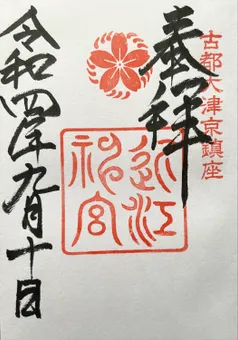 古都大津京鎮座
奉拝
近江
神宮
令和四年九月十日